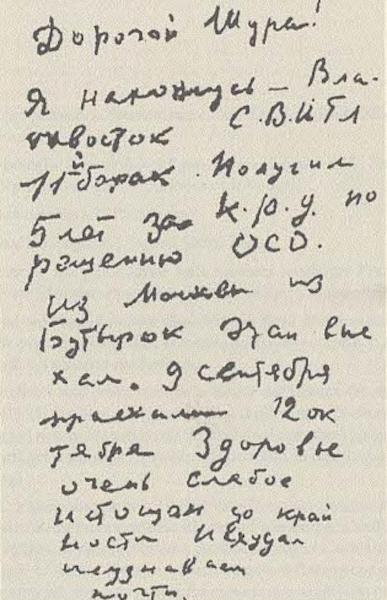 Дорогой Шура!
Я нахожусь – Вла-
дивосток С.В.ИТЛ
11й барак. Получил
5 лет за К.Р.Д. по
решению ОСО.
Из Москвы из
Бутырок этап вые
хал. 9 сентября
приехали 12 ок
тября Здоровье
очень слабое
истощен до край
ности исхудал
неузнаваем
почти.